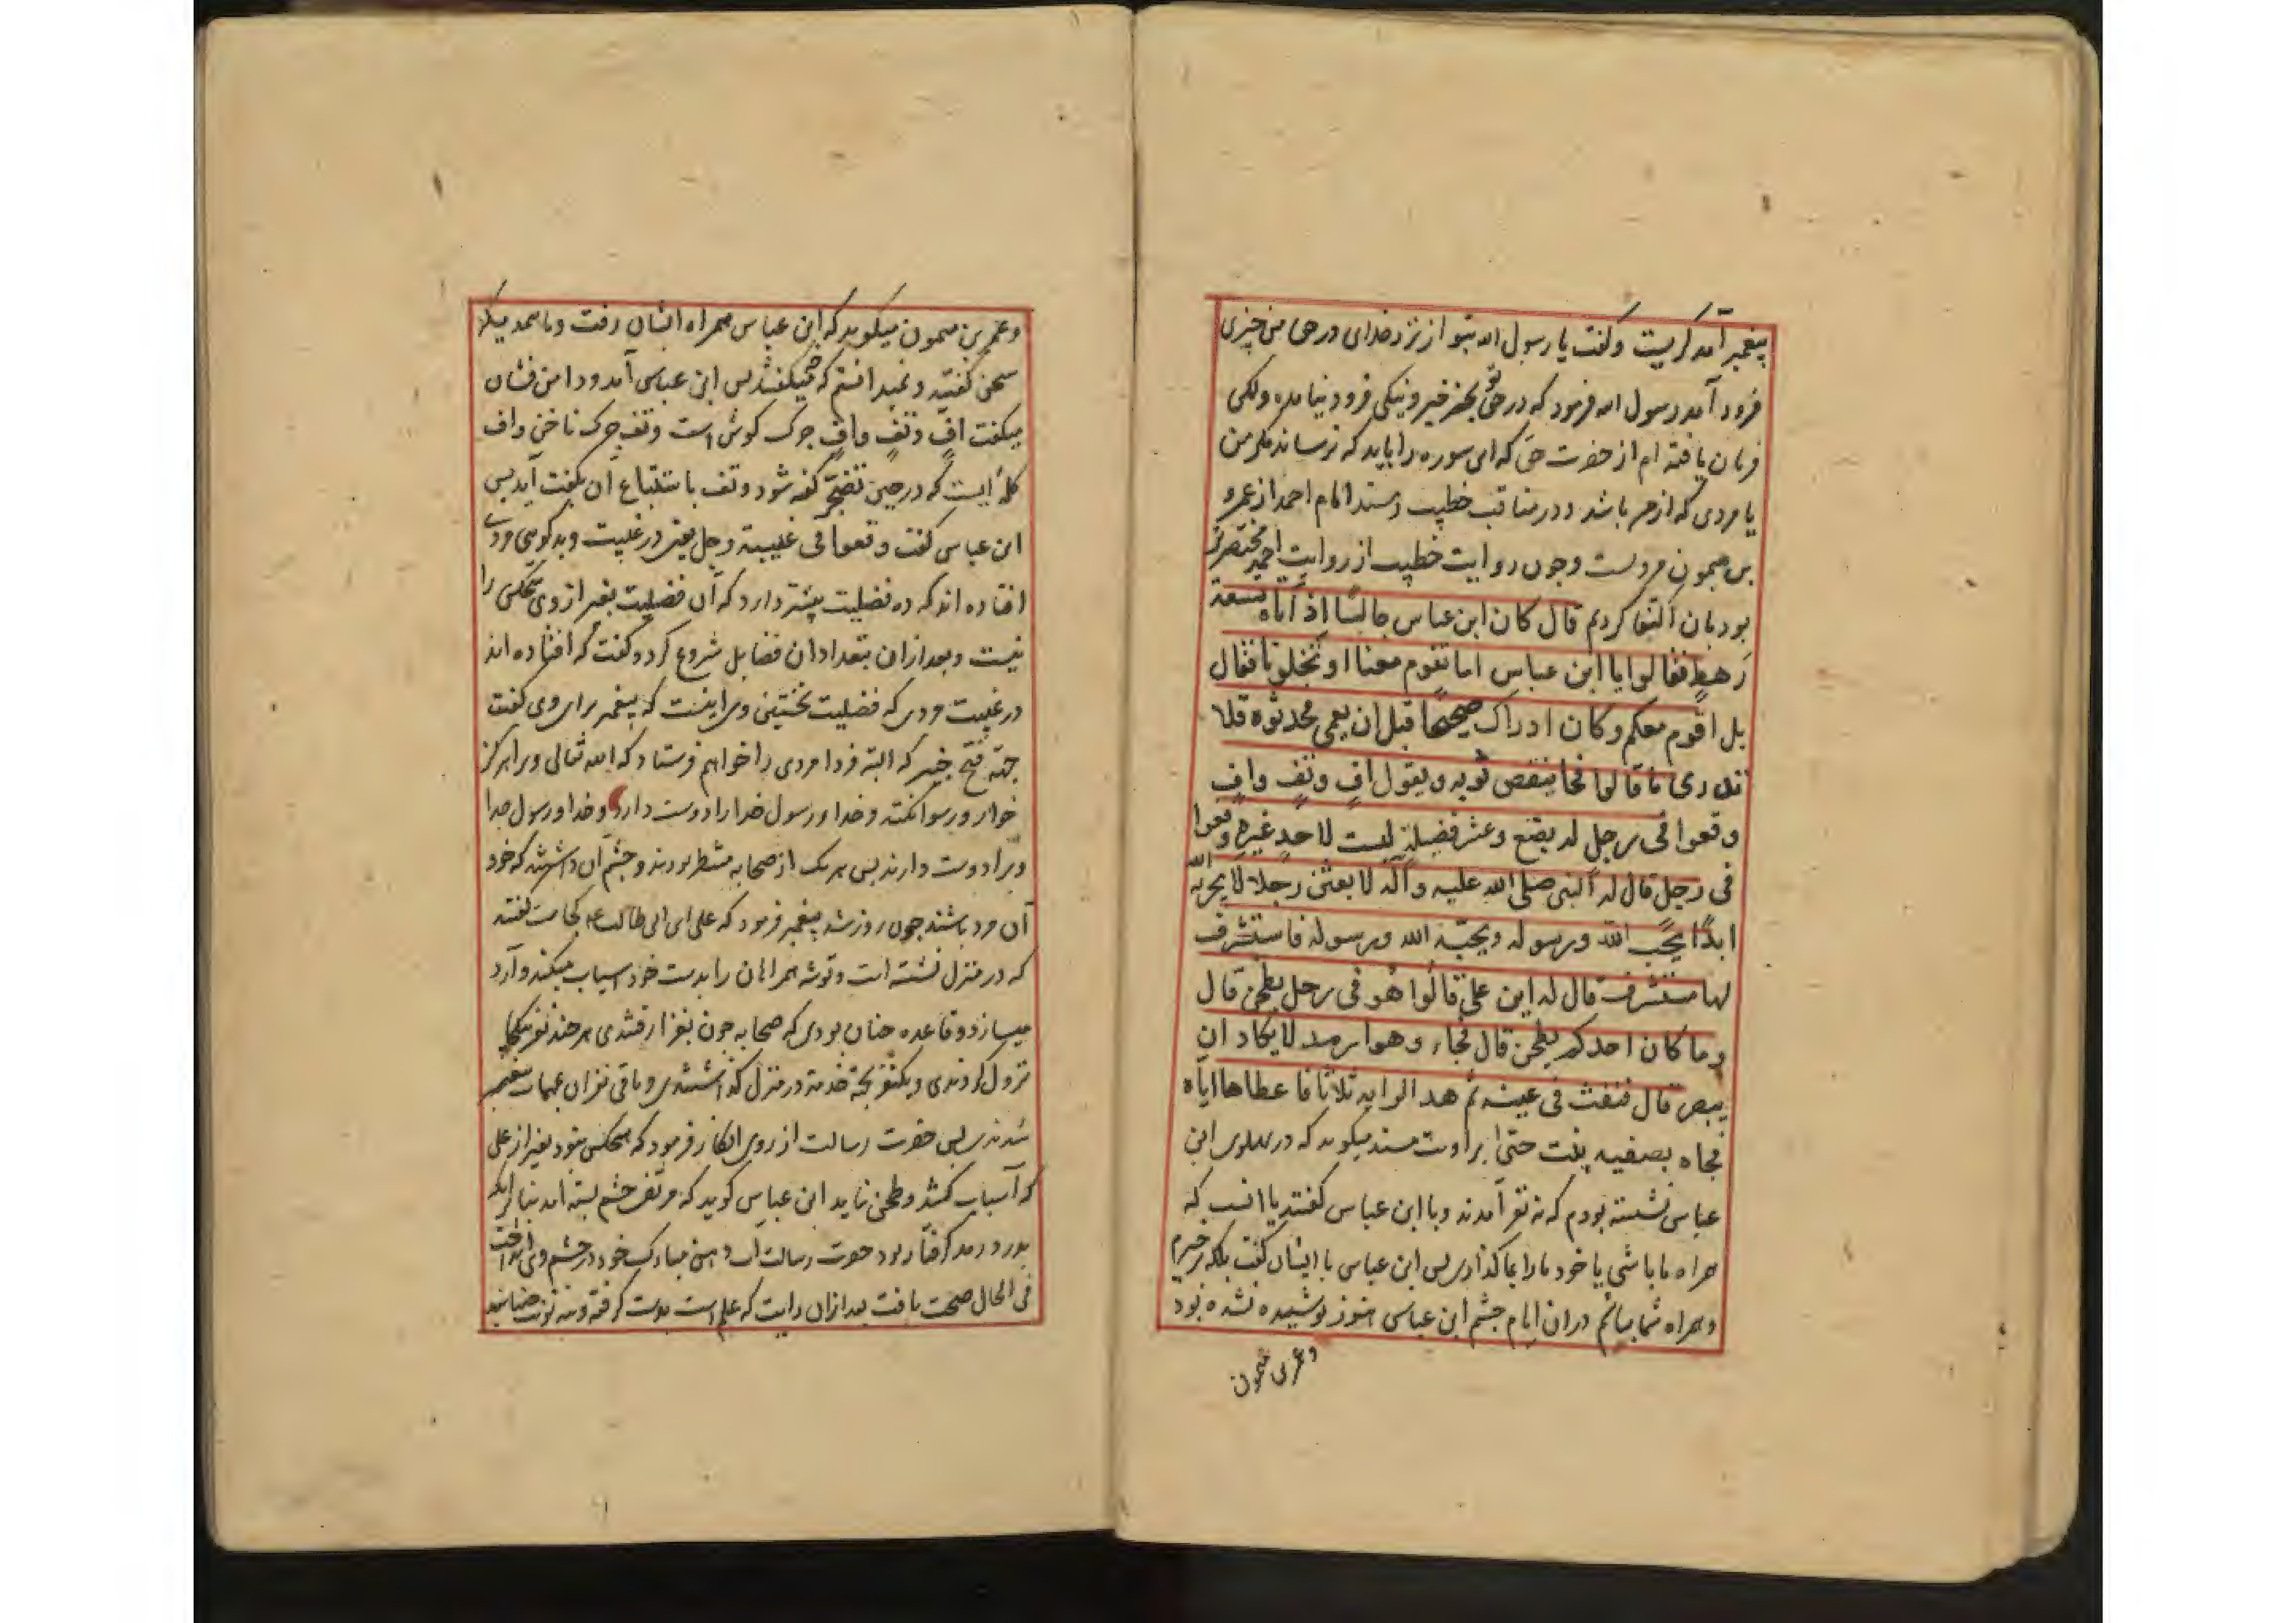 پیغمبر آمد کریست و گفت یا رسول الله بتو از نزد خدای در حق من چیزی
فرود آمد رسول الله فرمود که در حق تو بجز خیر و نیکی فرود نیامده ولکن
فرمان یافته ام از حضرت حق که این سوره را باید که نرساند مکر من
یا مردی که از من باشد و در مناقب خطیب و مسند امام احمد از عمرو
بن میمون مرویست و چون روایت خطیب از روایت احمد مختصرتر
بود بان اکتفا کردیم قال کان ابن عباس جالسًا اذ أتاه تسعة
رَهطٍ فقالوا یا ابن عباس اما تقوم معنا او تخلو بنا فقال
بل اقوم معکم و کان اذ ذاک صحیحًا قبل ان یعمی فحدثوه فلا
ندری ما قالوا فجا ینفض ثوبه و یقول افٍ و تفٍ و افٍ
وقعوا فی رجل له بضع و عشر فضیلةٍ لیست لاحدٍ غیرهِ وقعوا
فی رجل قال له النبی صلی الله علیه وآله لابعثن رجلا لا یخزیه الله
ابدًا یحب الله و رسوله و یحبّه الله و رسوله فاستشرف
لها مستشرف قال له این علی قالوا هو فی رحل یطحن قال
و ما کان احدکم یطحن قال فجاء و هو ارمد لا یکاد ان
یبصر قال فنفث فی عینه ثم هز الرایه ثلاثا فاعطاها ایاه
فجاه بصفیه بنت حتیٰ راوی مسند میکوید که در پهلوی ابن
عباس نشسته بودم که نه نفر آمدند و با ابن عباس گفتند یا انست که
همراه ما باشی یا خود ما را بما کذاری پس ابن عباس با ایشان گفت بلکه برخیزم
و همراه شما بیایم دران ایام چشم ابن عباس هنوز پوشیده نشده بود
و عمر بن میمون
و عمر بن میمون میکوید که ابن عباس همراه ایشان رفت و با همدیکر
سخن کفتند و نمیدانستم که چه میکفتند پس ابن عباس آمد و دامن فشان
میکفت افٍ و تفٍ و افٍ چرک کوش است و تف چرک ناخن و اف
کلمه ایست که در حین تضجر گفته شود و تف با تتباع آن بکفت آید پس
ابن عباس کفت وقعوا فی غیبته رجل یعنی در غیبت و بدکویی مردی
افتاده اند که ده فضلیت بیشتر دارد که آن فضیلت بغیر از وی هیچکس را
نیست و بعد ازان بتعداد ان فضایل شروع کرد و کفت که افتاده اند
در غیبت مردی که فضلیت نخستین وی اینست که پیغمبر برای وی کفت
جهته فتح خیبر که البته فردا مردی را خواهم فرستاد که الله تعالی ویرا هرکز
خوار و رسوا نکند و خدا و رسول خدا را دوست دارد و خدا و رسول خدا
ویرا دوست دارند پس هر یک از صحابه منتظر بودند و چشم آن داشتند که خود
آن مرد باشند چون روز شد پیغمبر فرمود که علی ابن ابی طالب کجاست کفتند
که در منزل نشسته است و توشه همراهان را بدست خود اسیاب میکند و آرد
میسازد و قاعده چنان بودی که صحابه چون بغزا رفتندی هر چند نفر یکجا
نزول کردندی و یکنفر بجهة خدمة در منزل گذاشتندی و باقی نفران بمهمات پیغمبر
شدندی پس حضرت رسالت از روی انکار فرمود که هیچکس نبود بغیر از علی
که آسیاب کشد و طحن نماید ابن عباس کوید که مرتضی چشم بسته آمد بنا بر آنکه
بدرد رمد گرفتار بود حضرت رسالت آب دهن مبارک خود در چشم وی انداخت
فی الحال صحت یافت بعد ازان رایت که علم است بدست کرفته و سه نوبت جنبانید